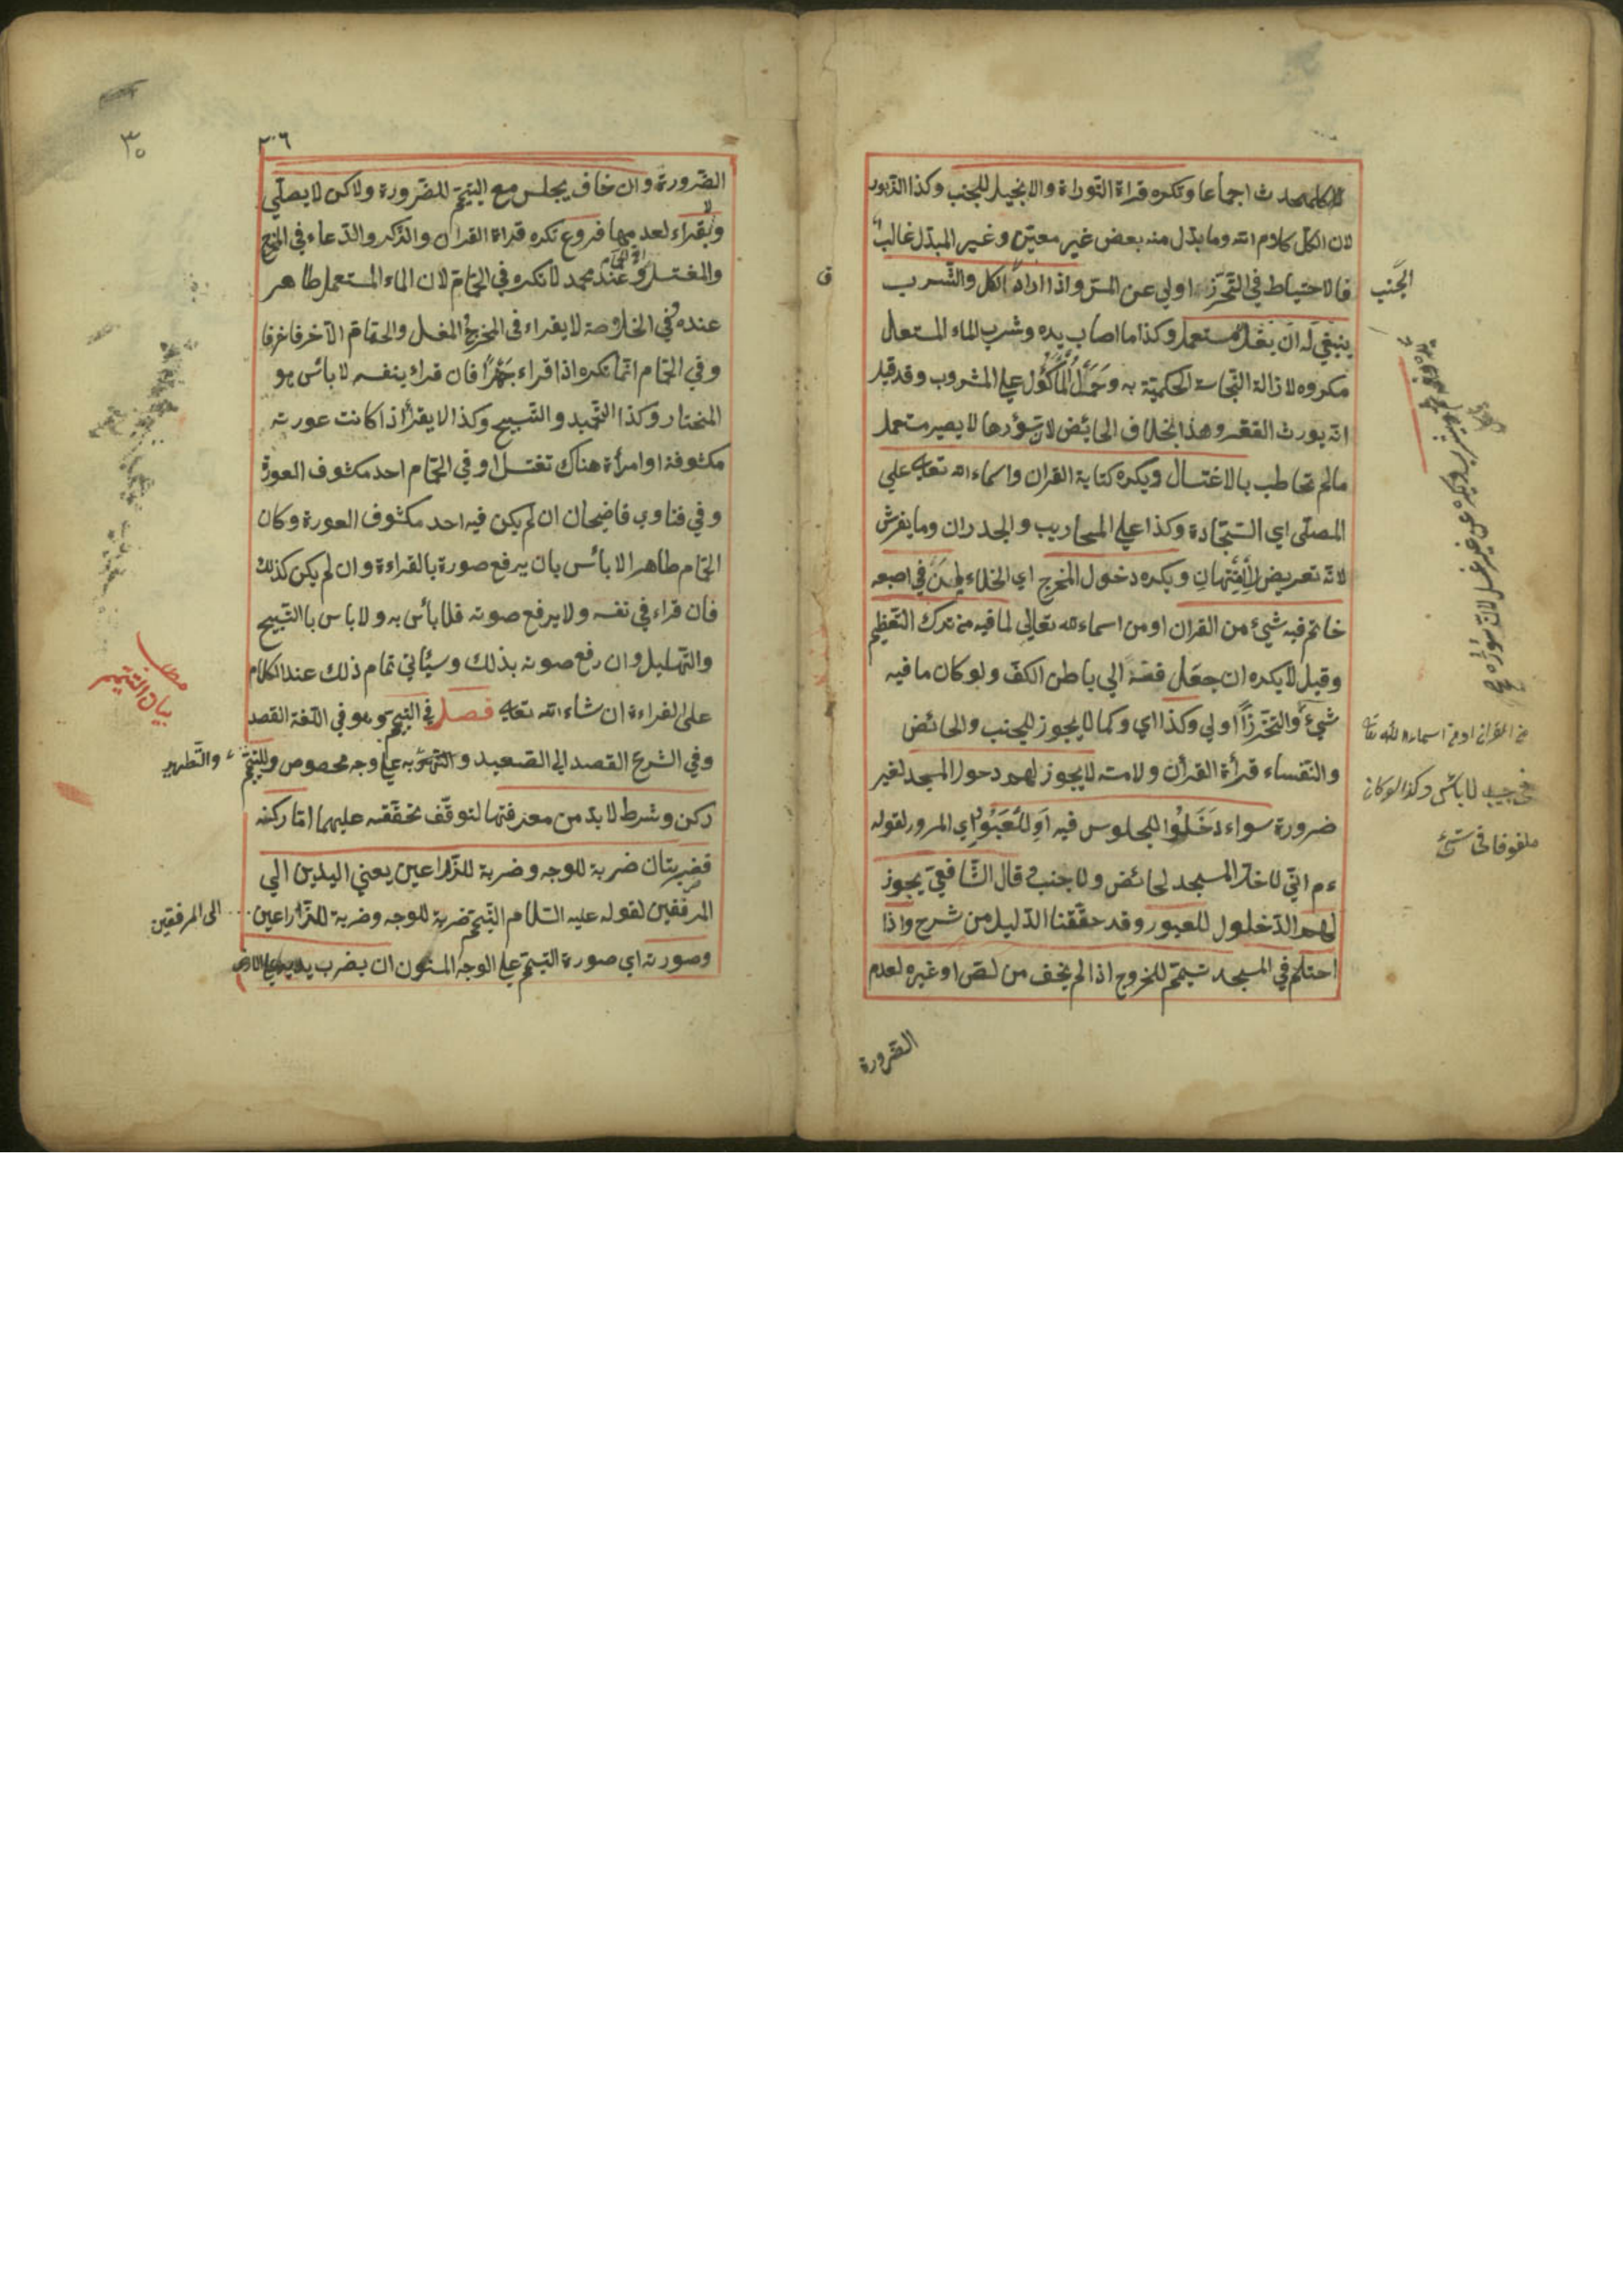 للمحدث اجماعا وتكره قراة التوراة والانجيل للجنب وكذا الزبور
لان الكل كلام الله وما بدّل منه بعض غير معيّن وغير المبدّل غالب
فالاحتياط في التحرّز اولي عن المسّ واذا اراد الاكل والشرب
ينبغي له ان يغسل وكذا ما اصاب يده وشرب الماء المستعمل
مكروه لازالة النجاسة الحكميّة به وحمل المأكول علي المشروب وقد قيل
انّه يورث الفقر وهذا بخلاف الحائض لان سؤرها لا يصير مستعمل
مالم تخاطب بالاغتسال ويكره كتابة القران واسماء الله تعالي علي
المصلّى اي السّجّادة وكذا علي المحاريب والجدران وما يفرش
لانّه تعريض للامتهان ويكره دخول المخرج اي الخلاء لمن في اصبعه
خاتم فيه شيئ من القران او من اسماء الله تعالي لما فيه من ترك التعظيم
وقيل لا يكره ان جعل فصّه الي باطن الكفّ ولو كان ما فيه
شيئ والتحرّز اولي وكذا اي وكما لا يجوز للجنب والحائض
والنّفساء قرأة القرأن ولامسه لا يجوز لهم دخول المسجد لغير
ضرورة سواء دخلوا للجلوس فيه او للعبور اي المرور لقوله
ءم انّي لا احل المسجد لحائض ولا جنب قال الشّافعيّ يجوز
لهم الدّخول للعبور وقد حقّقنا الدّليل من شرح واذا
احتلم في المسجد تيمّم للخروج اذا لم يخف من لصّ او غيره لعدم
الضّرورة
الجنب
من القران او من اسماء الله تعا
في جيبه لا بائس وكذا لو كان
ملفوفا في شيئ
٣٠
الضّرورة وان خاف يجلس مع التيمّم للضّرورة ولاكن لا يصلّي
ولا يقراء لعدمها فروع تكره قراة القران والذّكر والدّعاء في المخرج
والمغتسل وعند محمد لا تكره في الحمّام لان الماء المستعمل طاهر
عنده وفي الخلاصة لا يقراء في المخرج المغسل والحمّام الّا حرفا حرفا
وفي الحمّام انّما تكره اذا قراء جهرًا فان قراء بنفسه لا بائس هو
المختار وكذا التّحميد والتّسبيح وكذا لا يقرأ اذا كانت عورته
مكشوفة او امرأة هناك تغتسل او في الحمّام احد مكشوف العورة
وفي فتاوي قاضيحان ان لم يكن فيه احد مكشوف العورة وكان
الحمّام طاهرا لا بائس بان يرفع صورة بالقراءة وان لم يكن كذلك
فان قراء في نفسه ولا يرفع صوته فلا بائس به ولا باس باالتّسبيح
والتّهليل وان رفع صوته بذلك وسيئاتي تمام ذلك عند الكلام
على القراءة ان شاء الله تعالي فصل في التيمّم وهو في اللّغة القصد
وفي الشّرع القصد الي الصّعيد والتطهّر به علي وجه مخصوص وللتيمّم
ركن وشرط لا بدّ من معرفتها لتوقّف تحقّقه عليهما امّا ركنه
فضربتان ضربة للوجه وضربة للذّراعين يعني اليدين الي
المرفقين لقوله عليه السّلام التّيمّم ضربة للوجه وضربة للذّراعين
وصورته اي صورة التيمّم علي الوجه المسنون ان يضرب يديه علي الارض
بيان التيمّم
والتّطهير
الى المرفقين